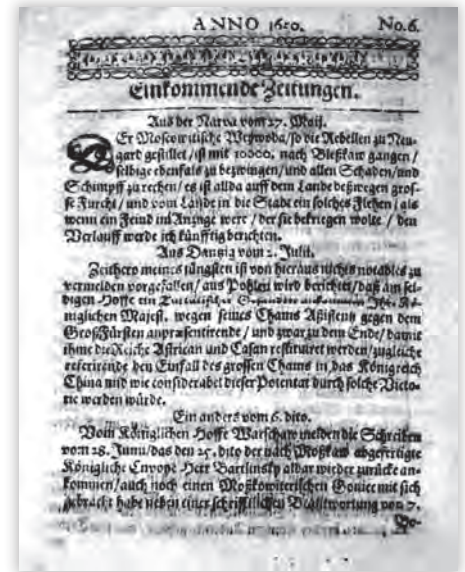 ANNO 1650. No. 6.
Einkommende Zeitungen.
Aus der Narva vom 27. Maij.
DEr Moscowitische Weywoda/so die Rebellen zu Neu-
gard gestillet/ist mit 10000. nach Pleßkaw gangen/
selbige ebenfals zu bezwingen/und allen Schaden/und
Schimpff zu rechen/es ist allda auff dem Lande deßwegen gros-
se Furcht/und vom Lande in die Stadt ein solches Fliehen/als
wenn ein Feind im Anzuge were/der sie bekriegen wolte/den
Verlauff werde ich künfftig berichten.
Aus Danzig vom 2. Julii.
Zeithero meines jüngsten ist von hieraus nichts notables zu
vermelden vorgefallen/aus Pohlen wird berichtet/daß am sel-
bigen Hoffe ein Tartarischer Gesandter ankommen Ihr. Kö-
niglichen Majest. wegen seines Chams Aßistentz gegen dem
GroßFürsten anpræsentirende/und zwar zu dem Ende/damit
ihme die Reiche Astrican und Casan restituiret werden/zugleich
referirende den Einfall des grossen Chams in das Königreich
China und wie considerabel dieser Potentat durch solche Victo-
rie werden würde.
Ein anders vom 6. dito.
Vom Königlichen Hoffe Warschaw melden die Schreiben
vom 28. Junii/das den 25. dito der nach Moßkaw abgefertigte
Königliche Envoye Herr Barlinsky aldar wieder zurücke an-
kommen/auch noch einen Moßkowiterischen Goniec mit sich
gebracht habe neben einer schrifftlichen Beantwortung von 7.
Bo-